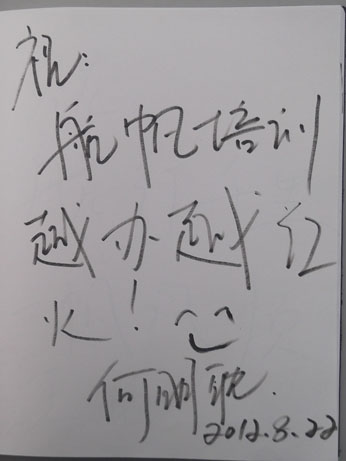 祝:
航帆培训
越办越红
火!
何
2012.8.22